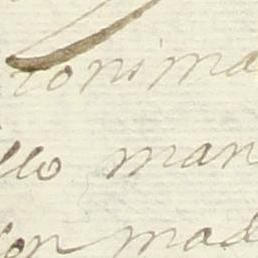 tonima
llo man
on mad